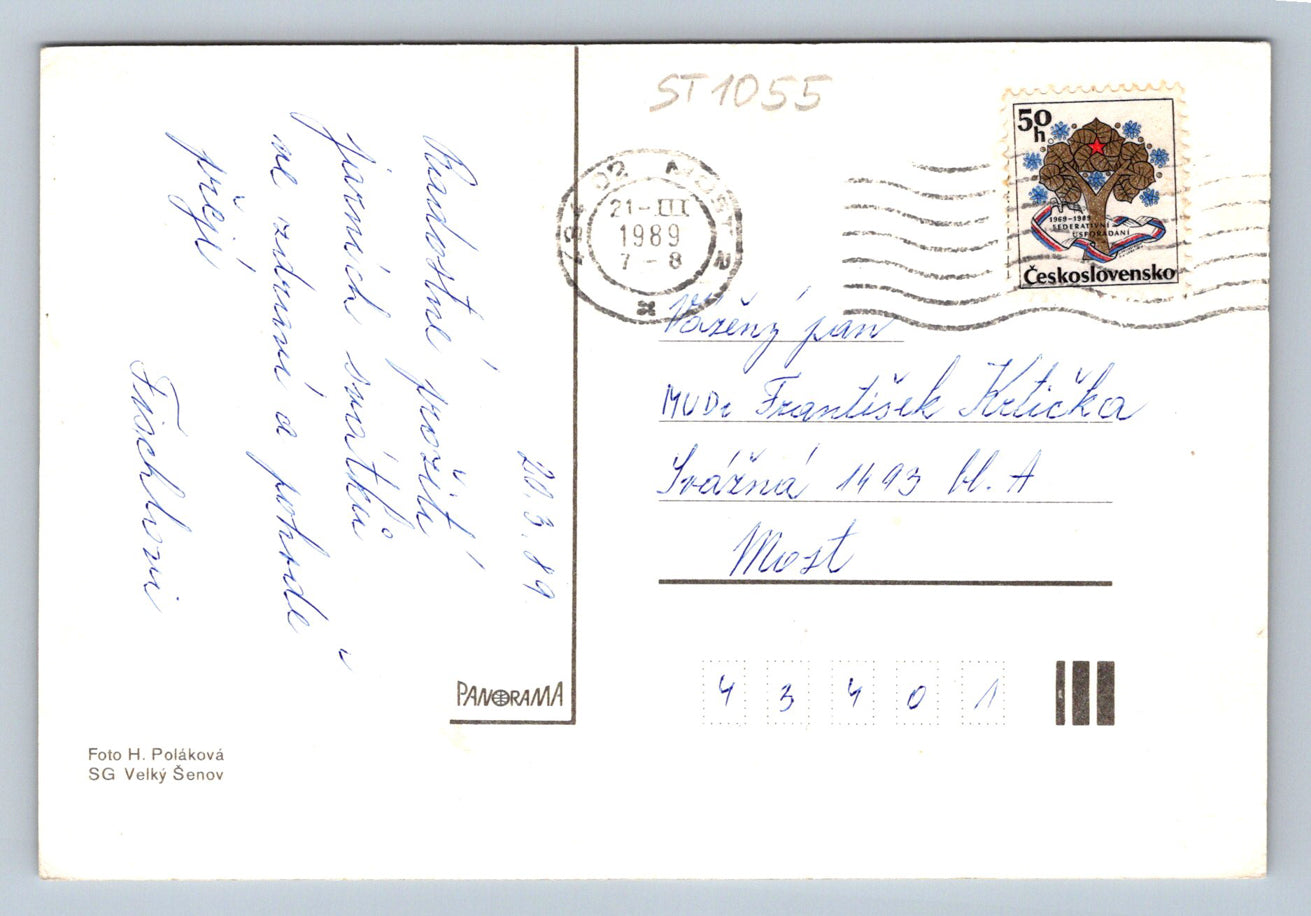 20.3.89
Radostné prožití
jarních svátků
ve zdraví a pohodě
přejí
Fischlovi
PANORAMA
Foto H. Poláková
SG Velký Šenov
ST1055
434 02 MOST 2
21-III
1989
7-8
50
h
1969-1989
FEDERATIVNÍ
USPOŘÁDÁNÍ
Československo
Vážený pan
MUDr František Krtička
Svážná 1493 bl. A
Most
43401